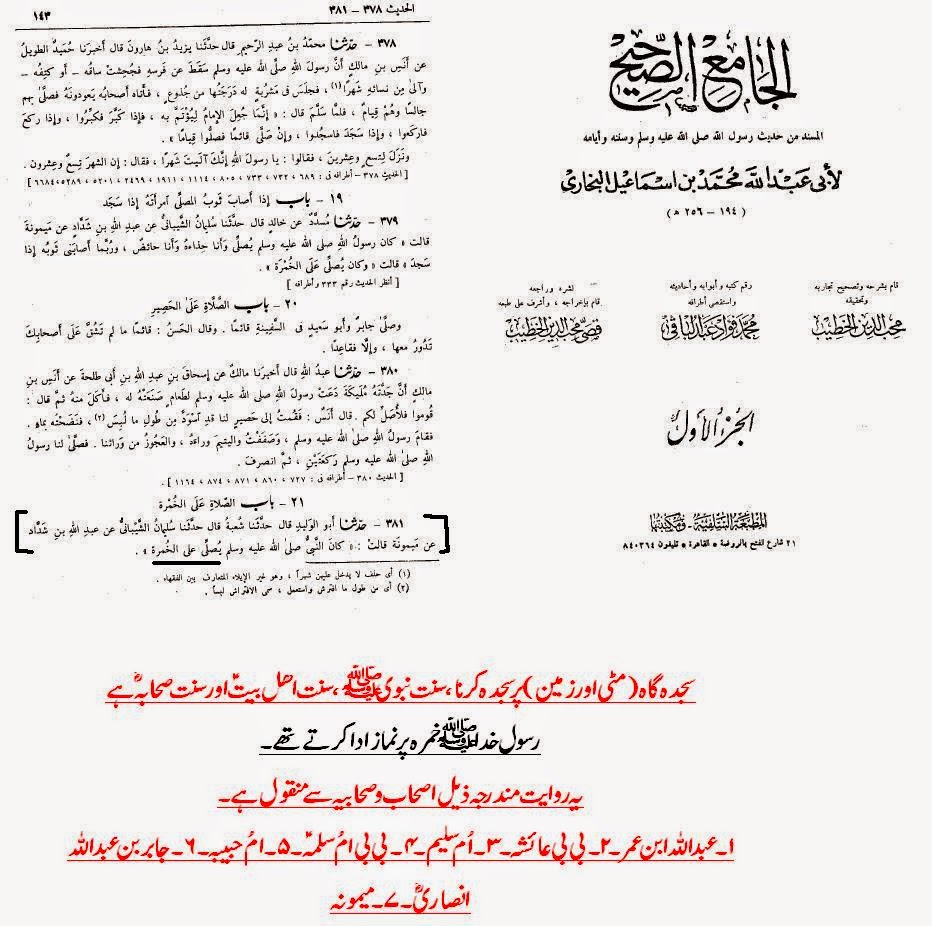 الحديث ٣٧٨ - ٣٨١
١٤٣
٣٧٨ - حدثنا محمّدُ بنُ عبدِ الرَّحيمِ قال حدَّثَنا يزيدُ بنُ هارونَ قال أخبرَنا حُمَيدٌ الطويلُ
عن أنَسِ بنِ مالكٍ أنَّ رسولَ اللهِ صلَّى الله عليه وسلم سَقَطَ عن فرَسِهِ فجُحِشَتْ ساقُه – أو كتِفُه –
وآلىٰ مِن نسائهِ شهرًا (١) ، فجلَسَ في مَشرُبةٍ له دَرَجَتُها من جُذوعٍ ، فأتاه أصحابُه يَعودونَهُ فصلَّىٰ بهم
جالسًا وهُمْ قِيامٌ ، فلمَّا سلَّمَ قال : « إنَّما جُعِلَ الإمامُ لِيُؤْتَمَّ به ، فإذا كبَّرَ فكبِّروا ، وإذا ركعَ
فاركَعوا ، وإذا سَجَدَ فاسجُدوا ، وإن صلَّىٰ قائمًا فصلُّوا قِيامًا » .
ونَزَلَ لِتِسعٍ وعِشرينَ ، فقالوا : يا رسولَ اللهِ إنَّكَ آلَيتَ شهرًا ، فقال : إن الشهرَ تِسعٌ وعِشرون .
[ الحديث ٣٧٨ – أطرافه في : ٦٨٩ ، ٧٣٢ ، ٧٣٣ ، ٨٠٥ ، ١١١٤ ، ١٩١١ ، ٢٤٦٩ ، ٥٢٠١ ، ٥٢٨٩، ٦٦٨٤ ]
١٩ – باب إذا أصابَ ثَوبُ المصلِّي امرأتَهُ إذا سَجَد
٣٧٩ – حدثنا مُسَدَّدٌ عن خالدٍ قال : حدَّثَنا سُليمانُ الشَّيبانيُّ عن عبدِ اللهِ بنِ شَدَّادٍ عن مَيمونةَ
قالت « كان رسولُ اللهِ صلى الله عليه وسلم يُصلِّي وأنا حِذاءهُ وأنا حائضٌ ، ورُبَّما أصابَني ثَوبُه إذا
سَجدَ » قالت « وكان يُصلِّي عَلَى الخُمْرَةِ » .
[ أنظر الحديث رقم ٣٣٣ وأطرافه ]
٢٠ – باب الصَّلاةِ عَلَىٰ الحَصِير
وصلَّى جابرٌ وأبو سَعيدٍ في السَّفينةِ قائمًا . وقال الحَسَنُ : قائمًا ما لم تَشُقَّ عَلَىٰ أصحابِكَ
تَدُورُ معها ، وإلَّا فقاعِدًا .
٣٨٠ – حدثنا عبدُ اللهِ قال أخبرَنا مالكٌ عن إسحاقَ بنِ عبدِ اللهِ بنِ أبي طلحةَ عن أنَسِ بنِ
مالكٍ أنَّ جَدَّتَهُ مُلَيكةَ دَعَتْ رسولَ اللهِ صلى الله عليه وسلم لطَعامٍ صَنَعَتْهُ له ، فأكَلَ منهُ ثمَّ قال :
قُوموا فلأُصَلِّ لكم . قال أنَسٌ : فقمتُ إلى حَصيرٍ لنا قدِ اسْوَدَّ مِن طُولِ ما لُبِسَ (٢) ، فنَضَحْتُه بماءٍ .
فقامَ رسولُ اللهِ صلى الله عليه وسلم ، وصَففْتُ واليتيمَ وراءَهُ ، والعَجُوزُ من وَرائنا . فصلَّىٰ لنا رسولُ
اللهِ صلى الله عليه وسلم رَكعَتَينِ ، ثمَّ انصرفَ .
[ الحديث ٣٨٠ – أطرافه في : ٧٢٧ ، ٨٦٠ ، ٨٧١ ، ٨٧٤ ، ١١٦٤ ] .
٢١ – باب الصَّلاةِ عَلَى الخُمْرة
٣٨١ – حدثنا أبو الوَليدِ قال حدَّثَنا شُعبةُ قال حدَّثَنا سُليمانُ الشَّيبانيُّ عن عبدِ اللهِ بنِ شَدَّادٍ
عن مَيمونةَ قالتْ : « كانَ النَّبيُّ صلى الله عليه وسلم يُصلِّي على الخُمرةِ » .
(١) أي حلف لا يدخل عليهن شهرًا ، وهو غير الإيلاء المتعارف بين الفقهاء .
(٢) أي من طول ما افترش واستعمل ، سمى الافتراش لبسًا .
الجامع الصحيح
المسند من حديث رسول الله صلى الله عليه وسلم وسننه وأيامه
لأبي عبد الله محمد بن اسماعيل البخاري
( ١٩٤ – ٢٥٦ ھ )
قام بشرحه وتصحيح تجاربه
وتحقيقه
محب الدين الخطيب
رقم كتبه وأبوابه وأحاديثه
واستقصى أطرافه
محمد فؤاد عبد الباقي
نشره وراجعه
قام بإخراجه ، وأشرف على طبعه
قصي محب الدين الخطيب
الجزء الأول
المطبعة السلفية - ومكتبتها
٢١ شارع الفتح بالروضة * القاهرة * تليفون ٨٤٠٣٦٤
سجدہ گاہ (مٹی اور زمین) پر سجدہ کرنا، سنت نبوی ﷺ، سنت اھل بیتؑ اور سنت صحابہؓ ہے
رسول خدا ﷺ خمرہ پر نماز ادا کرتے تھے۔
یہ روایت مندرجہ ذیل اصحاب و صحابیہ سے منقول ہے۔
۱۔عبداللہ ابن عمر۔۲۔بی بی عائشہ۔۳۔اُم سلیم۔۴۔بی بی امُ سلمہؓ۔۵۔امُ حبیبہ۔۶۔جابر بن عبداللہ
انصاریؓ۔۷۔میمونہ